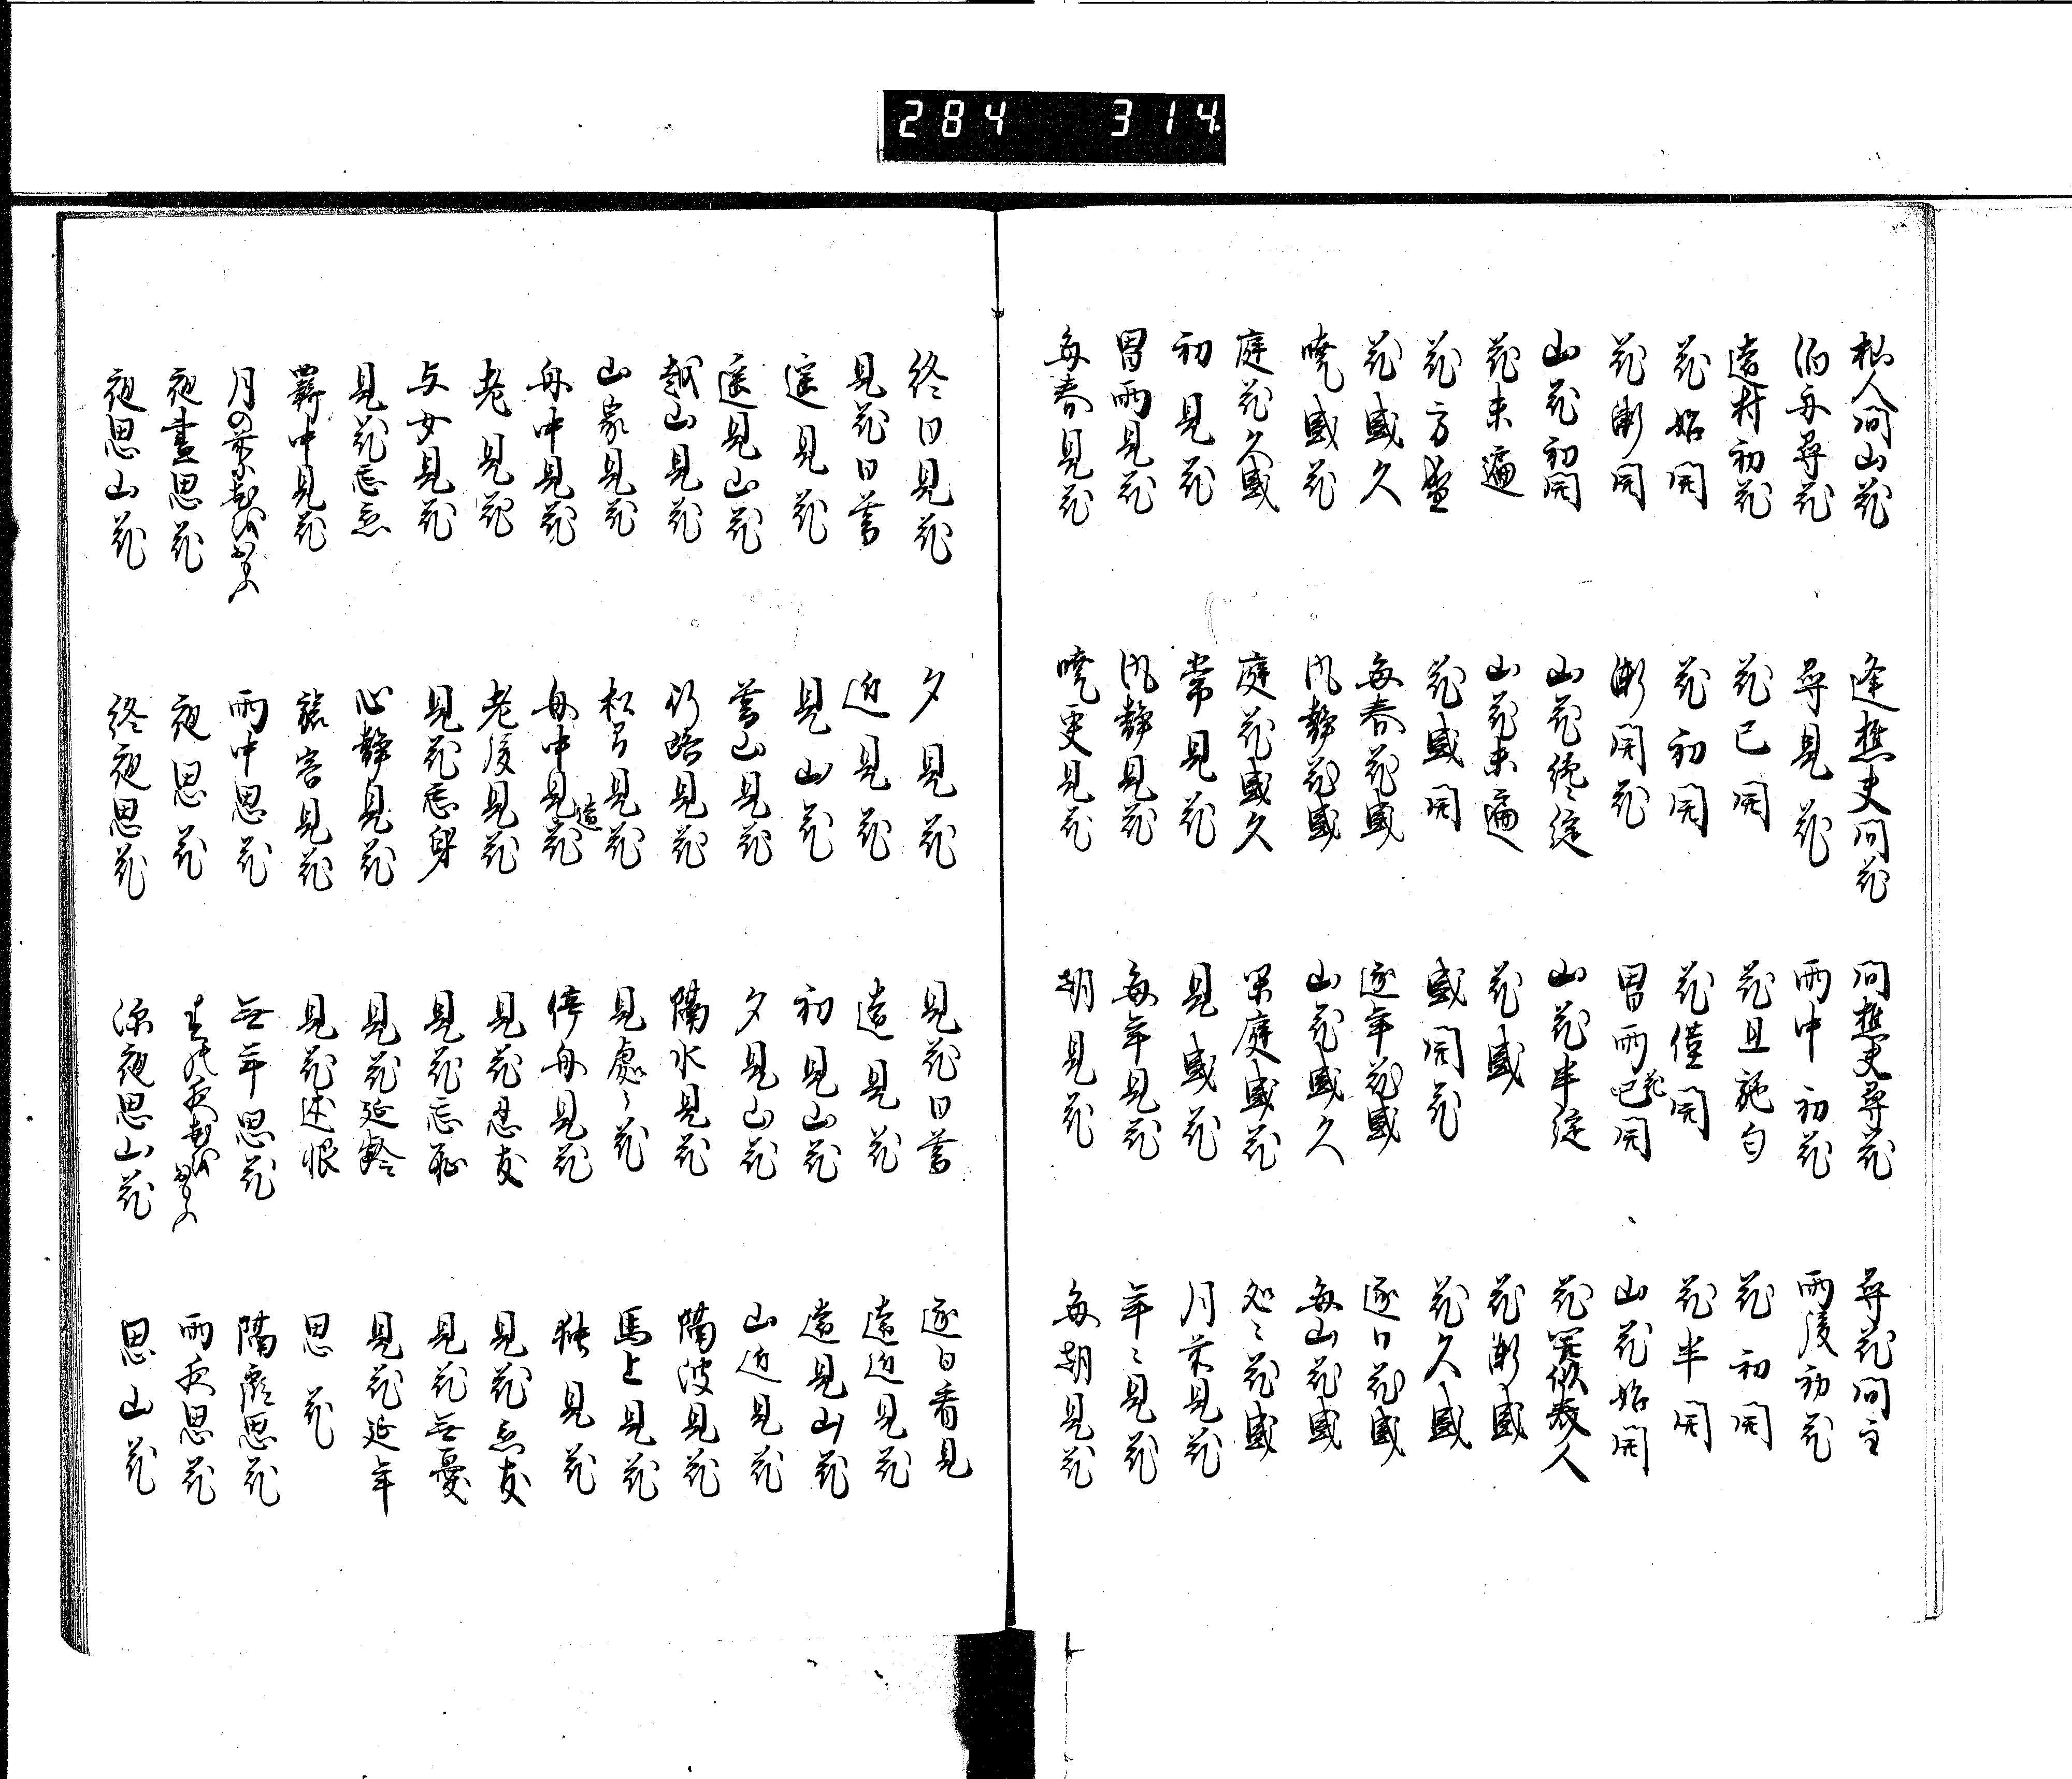 杣人問山花 逢樵夫問花 問樵夫尋花 尋花問主
泊舟尋花 尋見花 雨中初花 雨後初花
遠村初花 花已開 花且施匂 花初開
花始開 花初開 花僅開 花半開
花漸開 漸開花 冒雨花開 山花始開
山花初開 山花纔綻 山花半綻
花未遍 山花未遍 花盛 花漸盛
花方盛 花盛開 盛開花 花久盛
花盛久 毎春花盛 逐年花盛 逐日花盛
暁盛花 風静花盛 山花盛久 毎山花盛
庭花久盛 庭花盛久 累庭盛花 処〻花盛
初見花 常見花 見盛花 月前見花
冒雨見花 風静見花 毎年見花 年〻見花
毎春見花 暁更見花 朝見花 毎朝見花
終日見花 夕見花 見花日暮 逐日看見
見花日暮 近見花 遠見花 遠近見花
遥見花 見山花 初見山花 遠見山花
遥見山花 暮山見花 夕見山花 山近見花
越山見花 行路見花 隔水見花 隔波見花
山家見花 松間見花 見処〻花 馬上見花
舟中見花 舟中遠見花 停舟見花 独見花
老見花 老後見花 見花忍友 見花忘友
与女見花 見花忘身 見花忘恥 見花無憂
見花忘 心静見花 見花延齢 見花延年
羇中見花 旅客見花 見花述恨 思花
月の前 雨中思花 年思花 隔霞思花
夜思花 夜思花 雨夜思花
夜思山花 終夜思花 深夜思山花 思山花
284 314